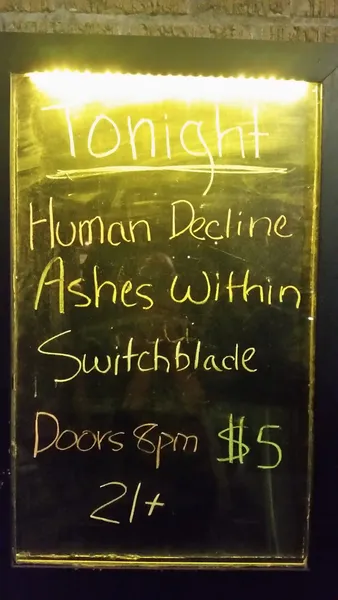 Tonight
Human Decline
Ashes Within
Switchblade
Doors 8pm $5
21+